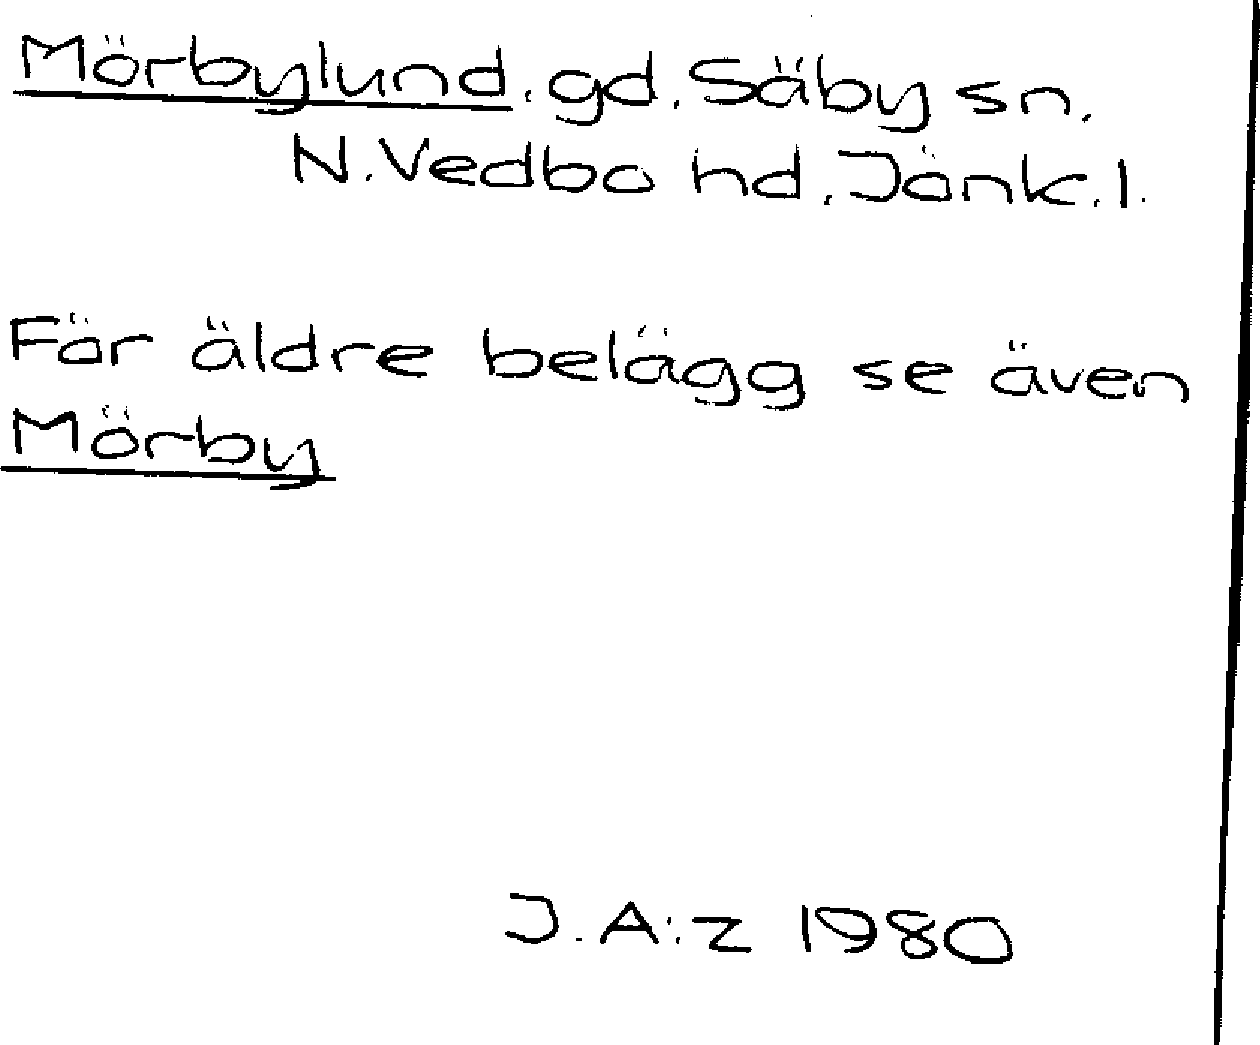 Mörbylund. gd. Säby sn.
N. Vedbo hd. Jönk. l.
För äldre belägg se även
Mörby
J. A:z 1980